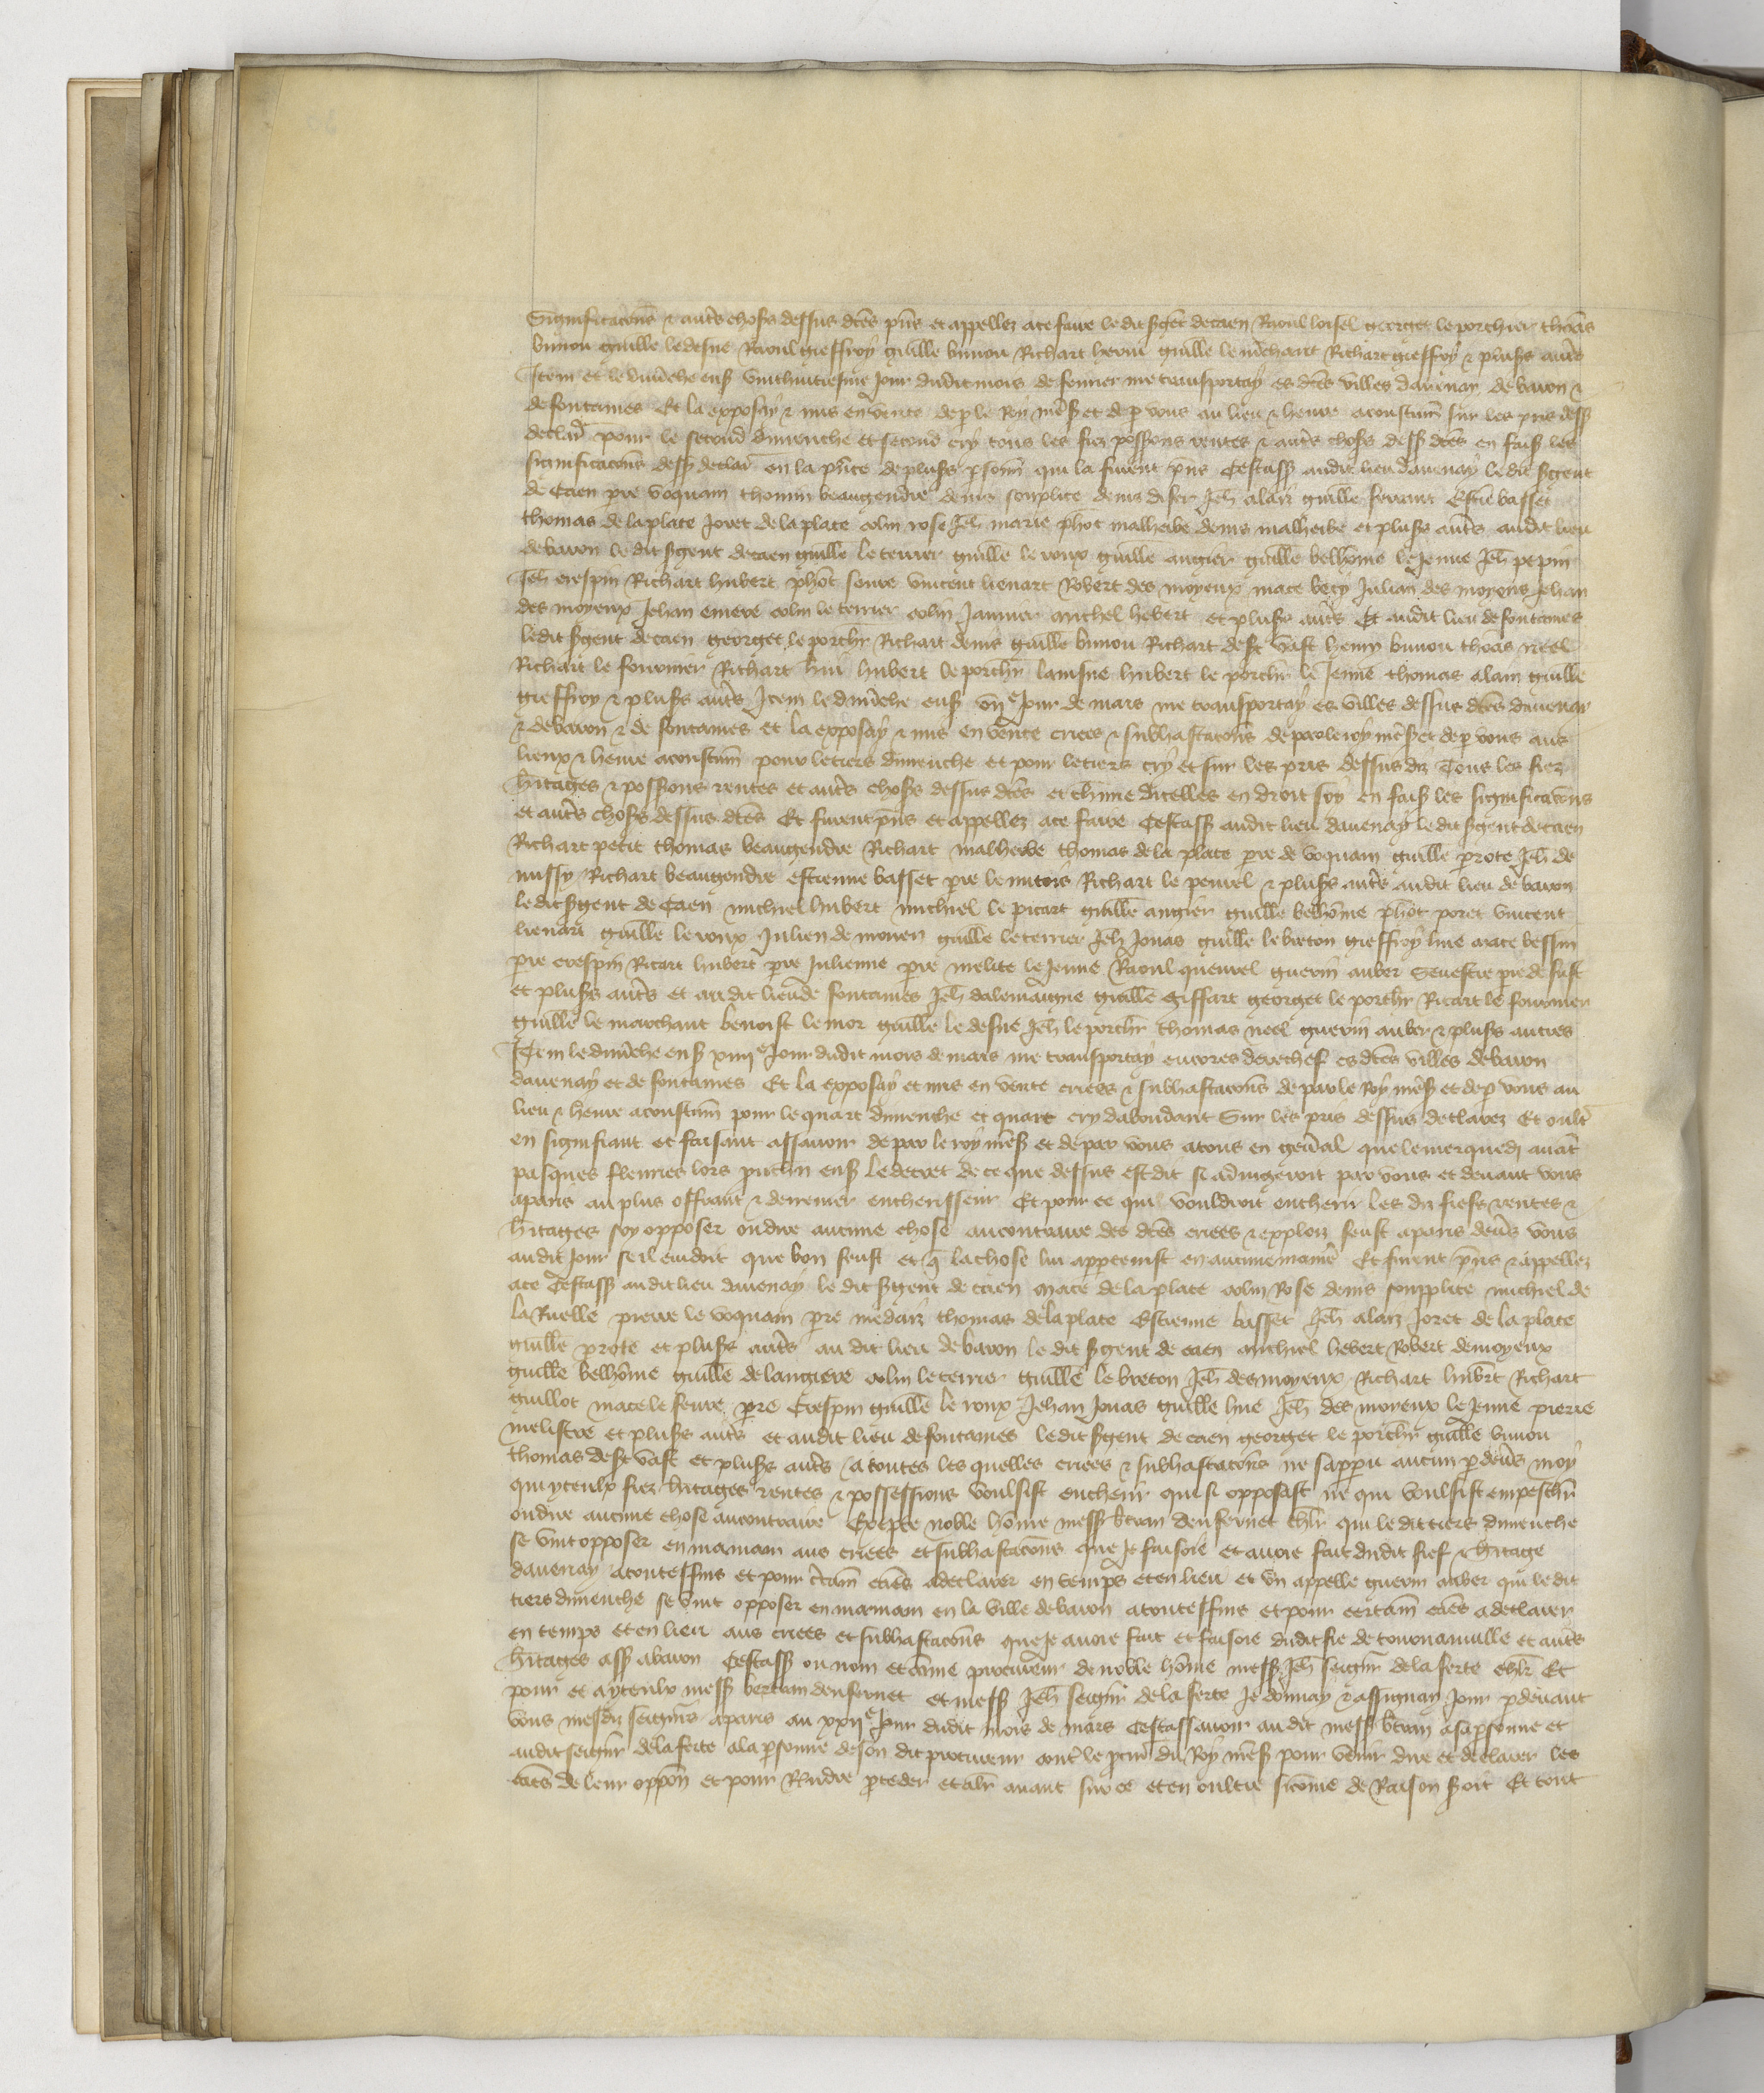 Significac̃ons & autr̃s choses dessus dc̃es p̃ns et appellez a ce faire ledit s̃gent de caen Raoul loisel georget le porchier thom̃as
bunou guill̃e ledesne Raoul gieffroy guill̃e bunou Richart herui guill̃e le m̃chant Richart gieffroy & plus̃s autr̃s
Item et le dim̃che ens̃ vinthuitiesme Jour dudit mois de feurier me transportay es dc̃es villes dauenay de baron &
de fontaines Et la exposay & mis en vente de p̃ le Roy nr̃es̃ et de p̃ vous au lieu & heure acoustum̃ sur les pris dess̃
declair̃ pour le second dimenche et second cry tous les fiez poss̃ons rentes & autr̃s choses dess̃ dc̃es en fais̃ les
significac̃ons dess̃ declair̃ en la p̃nce de plus̃s p̃sonñ qui la furent p̃ns Cestass̃ audit lieu dauenay le dit s̃gent
de Caen p̃re voquain thomin beaugendre denis souplice denis diser Jeh̃ alain guill̃e ferrant Estie basset
thomas de la place Joret de la place colin rose Jeh̃ marie ph̃ot malherbe denis malherbe et plus̃s autr̃s audit lieu
de baron le dit s̃gent de caen guill̃e le terrier guill̃e le roux guill̃e angier guill̃e belhom̃e le Jenne Jeh̃ pepin
Jeh̃ crespin Richart hubert ph̃ot seure vincent lienart Robert des moyeux mace becy Julian des moyeux Jehan
des moyeux Jehan emere colin le terrier colin Januier michel hebert et plus̃s autr̃s Et audit lieu de fontaines
ledit s̃gent de caen georget le porch̃r Richart denis guill̃e bunou Richart de st̃ vast henry bunou thom̃as neel
Richart le fournier Richart hũi hubert le porch̃r lainsne hubert le porch̃r le Jenne thomas alain guill̃e
gieffroy & plus̃s autr̃s Item le dim̃che ens̃ vij̃e Jour de mars me transportay es villes dessus dc̃es dauenay
& de baron & de fontaines et la exposay & mis en vente criees & subhastac̃ons de par le roy nr̃es̃ et de p̃ vous aus
lieux & heure acoustum̃ pour le tiers dimenche et pour le tiers cry et sur les pris dessus diz Tous les fiez
h̃itages & poss̃ions rentes et autr̃s choses dessus dc̃es et ch̃une dicelles en droit soy en fais̃ les significac̃ons
et autr̃s choses dessus dc̃es Et furent p̃ns et appellez a ce faire Cestass̃ audit lieu dauenay le dit s̃gent de caen
Richart petit thomas beaugendre Richart malherbe thomas de la place p̃re de voquain guill̃e prote Jeh̃ de
missy Richart beaugendre estienne basset p̃re le mitois Richart le penuel & plus̃s autr̃s audit lieu de baron
ledit s̃gent de Caen michiel hubert michiel le picart guill̃e angier guill̃e belhom̃e ph̃ot poret vincent
lienart guill̃e le roux Julien de mouen guill̃e le terrier Jeh̃ Jouas guill̃e le breton gieffroy hue mace bessin
p̃re crespin Ricart hubert p̃re Julienne p̃re melite le Jenne Raoul queuuel guerin auber Seuestre p̃re de sust
et plus̃s autr̃s et audit lieu de fontaines Jeh̃ dalemaigne guill̃e giffart georget le porch̃r Ricart le fournier
guill̃e le marchant benoist le mor guill̃e le desne Jeh̃ le porch̃r thomas neel guerin auber & plus̃s autres
Item le dim̃che ens̃ xiiij̃e Jour dudit mois de mars me transportay encores derechef es dc̃es villes de baron
dauenay et de fontaines Et la exposay et mis en vente criees & subhastac̃ons de par le Roy nr̃es̃ et de p̃ vous au
lieu & heure acoustum̃ pour le quart dimenche et quart cry dabondant Sur les pris dessus declarez Et oult̃
en signifiant et faisant assauoir de par le roy nr̃es̃ et de par vous a tous en gen̄al que le merquedj auãt
pasques flouries lors p̃ucham ens̃ le decret de ce que dessus est dit se adiugeroit par vous et deuant vous
aparis au plus offrant & derrenier encherisseur Et pour ce qui vouldroit encherir les diz fiefs rentes &
h̃itages soy opposer ou dire aucune chose au contraire des dc̃es criees & explois feust aparis deuãt vous
audit Jour se il cuidoit que bon feust et q̃ la chose lui app̃tenist en aucune maniẽ Et furent p̃ns & appellez
a ce Cestass̃ audit lieu dauenay le dit s̃gent de caen mace de la place colin Rose denis souplice michiel de
la Ruelle pierre le voquain p̃re medart thomas de la place Estienne basset Jeh̃ alain Joret de la place
guill̃e prote et plus̃s autr̃s au dit lieu de baron le dit s̃gent de caen michiel hebert Robert demoyeux
guill̃e belhom̃e guill̃e de langiere colin le terrier guill̃e le breton Jeh̃ des moyeux Richart hub̃rt Richart
guillot mace le feure p̃re Crespin guill̃e le roux Jehan Jouas guill̃e hue Jeh̃ des moyeux le Jenne pierre
melistre et plus̃s autr̃s et audit lieu de fontaines ledit s̃gent de caen georget le porch̃r guill̃e bunou
thomas de st̃ vast et plus̃s autr̃s A toutes les quelles criees & subhastac̃ons ne sapparu aucun p̃ deũs moy
qui yceulx fiez h̃itages rentes & possessions voulsist encherir qui se opposast ne qui voulsist empesch̃r
ou dire aucune chose au contraire Excepte noble hom̃e mess̃ b̃tran denfernet ch̃lr qui le dit tiers dimenche
se vint opposer en ma main aus criees et subhastac̃ons que Je faisoie et auoie fait dudit fief & h̃itage
dauenay a toutes fins et pour c̃tain̄ caũs a declairer en temps et en lieu et vn appelle guerin auber qui le dit
tiers dimenche se vint opposer en ma main en la ville de baron a toutes fins et pour certain̄ caũs a declairer
en temps et en lieu aus criees et subhastac̃ons que Je auoie fait et faisoie dudit fie de tournainuille et autr̃s
h̃itages ass̃ a baron Cestass̃ ou nom et com̃e procureur de noble hom̃e mess̃ Jeh̃ seign̄r de la ferte ch̃lr Et
pour et a yceulx mess̃ bertran denfernet et mess̃ Jeh̃ seign̄r de la ferte Je donnay & assignay Jour p̃deuant
vous mesdis̃ seign̄rs a paris au xxij̃e Jour dudit mois de mars Cestassauoir audit mess̃ b̃tran a sa p̃sonne et
audit seign̄r de la ferte a la p̃sonne de son dit procureur cont̃ le p̃cur̃ du Roy nr̃es̃ pour venir dire et declairer les
caũs de leur opp̃on et pour Respondre p̃ceder et aler auant sur ce et en oultre si com̃e de Raison s̃oit Et tout